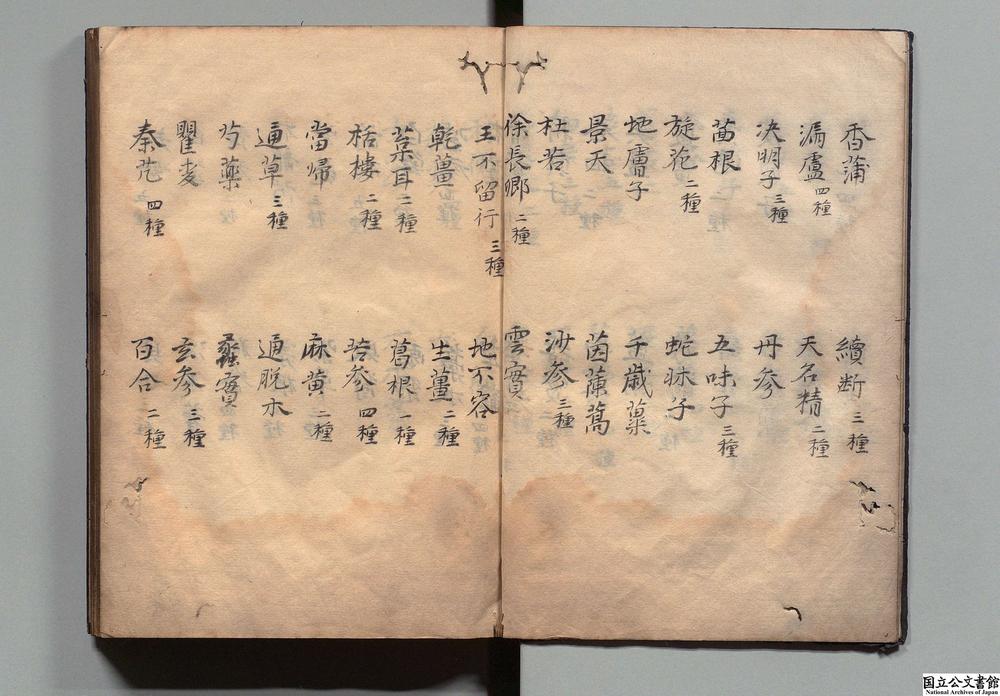 香蒲 續断 三種
漏盧 四種 天名精 二種
决明子 三種 丹参
茜根 五味子 三種
旋花 二種 蛇牀子
地膚子 千歳蘽
景天 茵蔯蒿
杜若 沙参 三種
徐長卿 二種 雲實
王不留行 三種 地不容
乾薑 生薑 二種
葈耳 二種 葛根 一種
栝樓 二種 苦参 四種
當歸 麻黄 二種
通草 三種 通脱木
芍藥 蠡實
瞿麦 玄参 三種
秦艽 四種 百合 二種
国立公文書館
National Archives of Japan